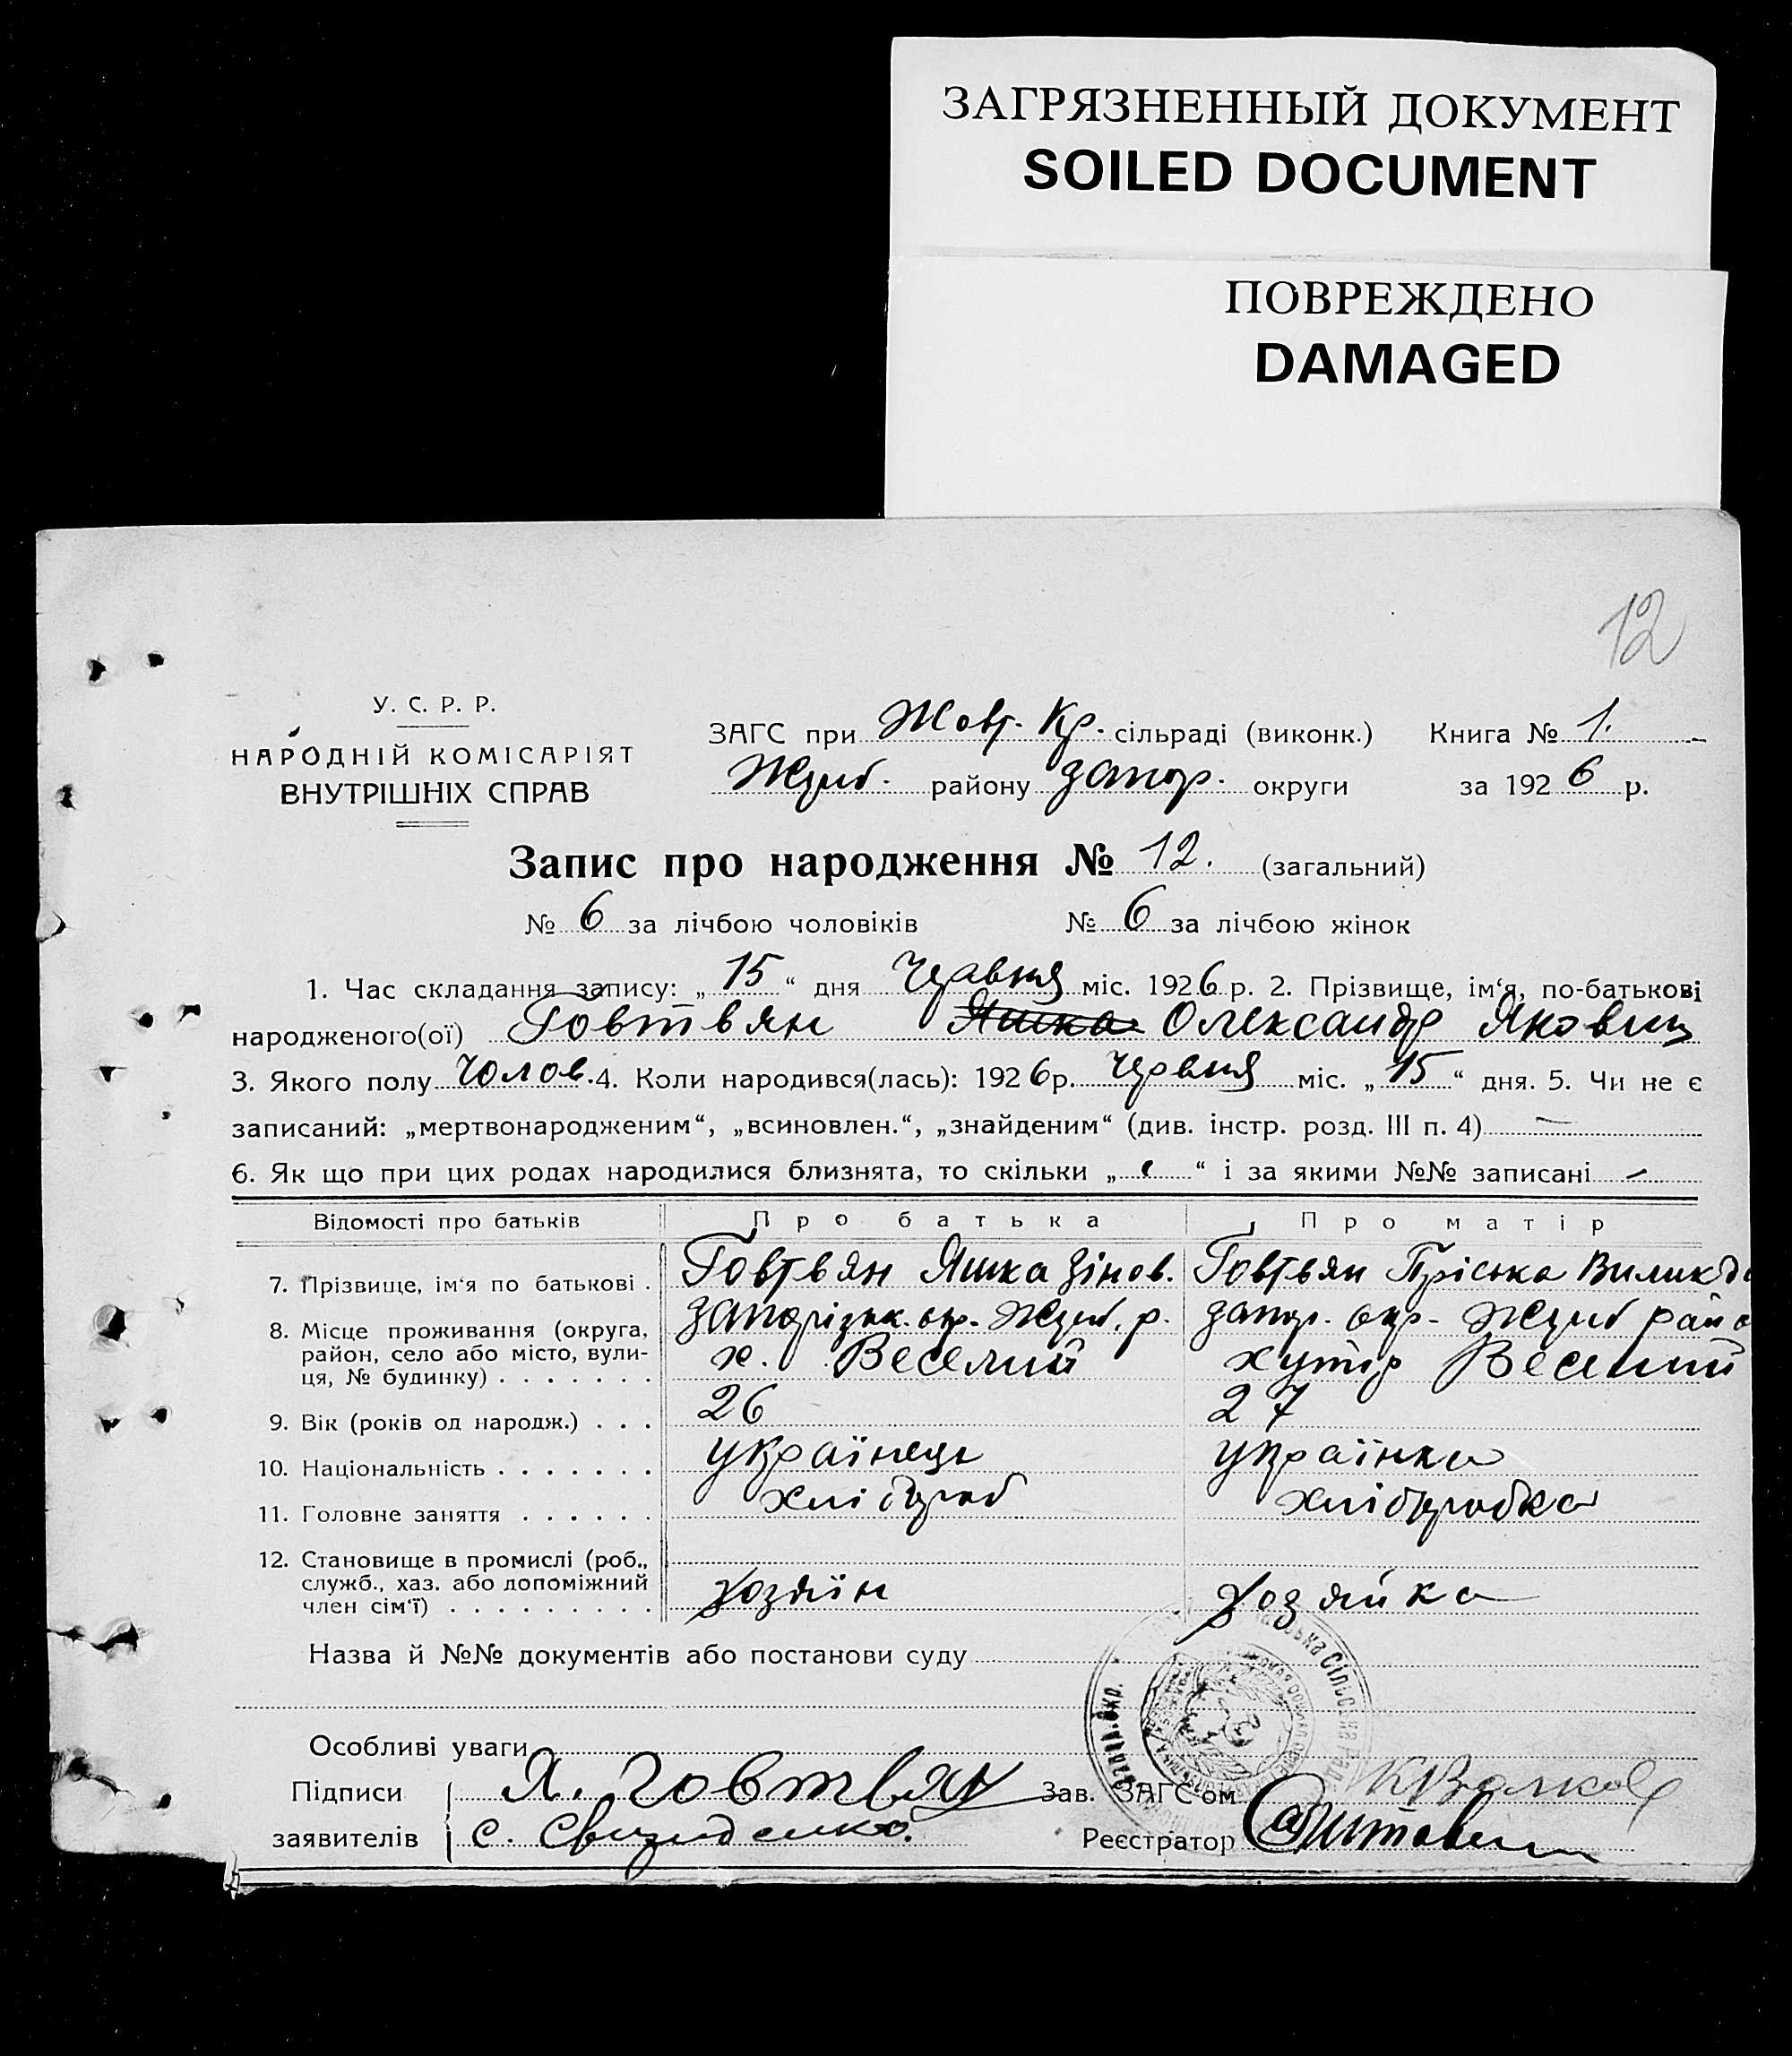 ЗАГРЯЗНЕННЫЙ ДОКУМЕНТ
SOILED DOCUMENT
ПОВРЕЖДЕНО
DAMAGED
12
У. С. Р. Р.
НАРОДНІЙ КОМІСАРІЯТ
ВНУТРІШНІХ СПРАВ
ЗАГС при Жовт. Кр. сільраді (виконк.) Книга № 1.
Жереб. району Запор. округи за 1926 р.
Запис про народження № 12. (загальний)
№ 6 за лічбою чоловіків № 6 за лічбою жінок
1. Час складання запису: „15“ дня Червня міс. 1926 р. 2. Прізвище, ім‘я, по-батькові
народженого(ої) Говтвян Яшка Олександр Якович
3. Якого полу Чолов. 4. Коли народився(лась): 1926 р. Червня міс. „15“ дня. 5. Чи не є
записаний: „мертвонародженим“, „всиновлен.“, „знайденим“ (див. інстр. розд. III п. 4) —
6. Як що при цих родах народилися близнята, то скільки „ “ і за якими №№ записані —
Відомості про батьків Про батька Про матір
7. Прізвище, ім‘я по батькові . Говтвян Яшка Зінов. Говтвян Пріська
8. Місце проживання (округа, Запорізьк. окр. Жереб. р. Запор. окр. Жереб райо
район, село або місто, вули- х. Веселий хутір Веселий
ця, № будинку) . . . . . . .
9. Вік (років од народж.) . . . 26 27
10. Національність . . . . . . . українець українка
11. Головне заняття . . . . . . хлібороб хліборобка
12. Становище в промислі (роб.,
служб., хаз. або допоміжний хозяїн хозяйка
член сім‘ї) . . . . . . . . .
Назва й №№ документів або постанови суду
Особливі уваги
Підписи Я. Говтвян Зав. ЗАГС‘ом К Волков
заявителів С. Свириденко. Реєстратор